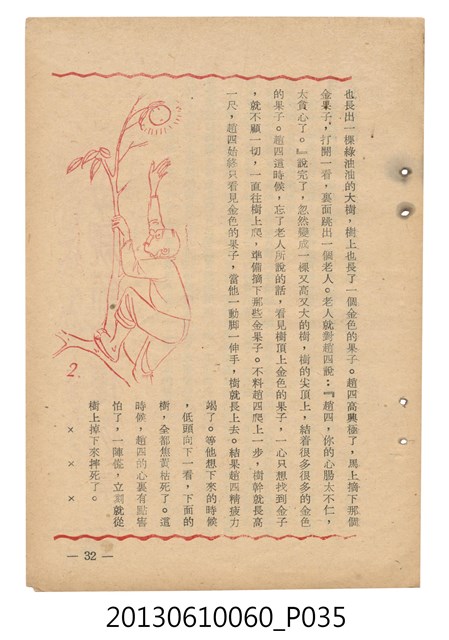 也長出一棵綠油油的大樹，樹上也長了一個金色的果子。趙四高興極了，馬上摘下那個
金果子，打開一看，裏面跳出一個老人。老人就對趙四說：『趙四，你的心腸太不仁，
太貪心了。』說完了，忽然變成一棵又高又大的樹，樹的尖頂上，結着很多很多的金色
的果子。趙四這時候，忘了老人所說的話，看見樹頂上金色的果子，一心只想找到金子
，就不顧一切，一直往樹上爬，準備摘下那些金果子。不料趙四爬上一步，樹幹就長高
一尺，趙四始終只看見金色的果子，當他一動脚一伸手，樹就長上去。結果趙四精疲力
竭了。等他想下來的時候
，低頭向下一看，下面的
樹，全都焦黃枯死了。這
時候，趙四的心裏有點害
怕了，一陣慌，立刻就從
樹上掉下來摔死了。
× × ×
2.
— 32 —
20130610060_P035